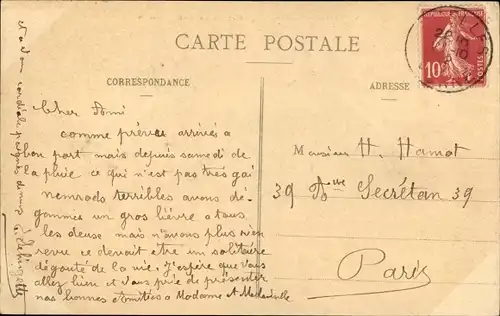 CARTE POSTALE
CORRESPONDANCE
ADRESSE
REPUBLIQUE FRANÇAISE
10c
POSTES
Cher Ami
comme prévu arrivés à
bon port mais depuis samedi de
la pluie ce qui n'est pas très gai
nemrods terribles avons dé-
gommés un gros lièvre a tous
les deuse mais n'avons plus rien
revu ce devait être un solitaire
dégouté de la vie; j'espère que vous
allez bien et vous prie de présenter
nos bonnes Amitiés a Madame et
et a vous cordiale poignée de mains
Monsieur H. Hamot
39 Ave Secrétan 39
Paris